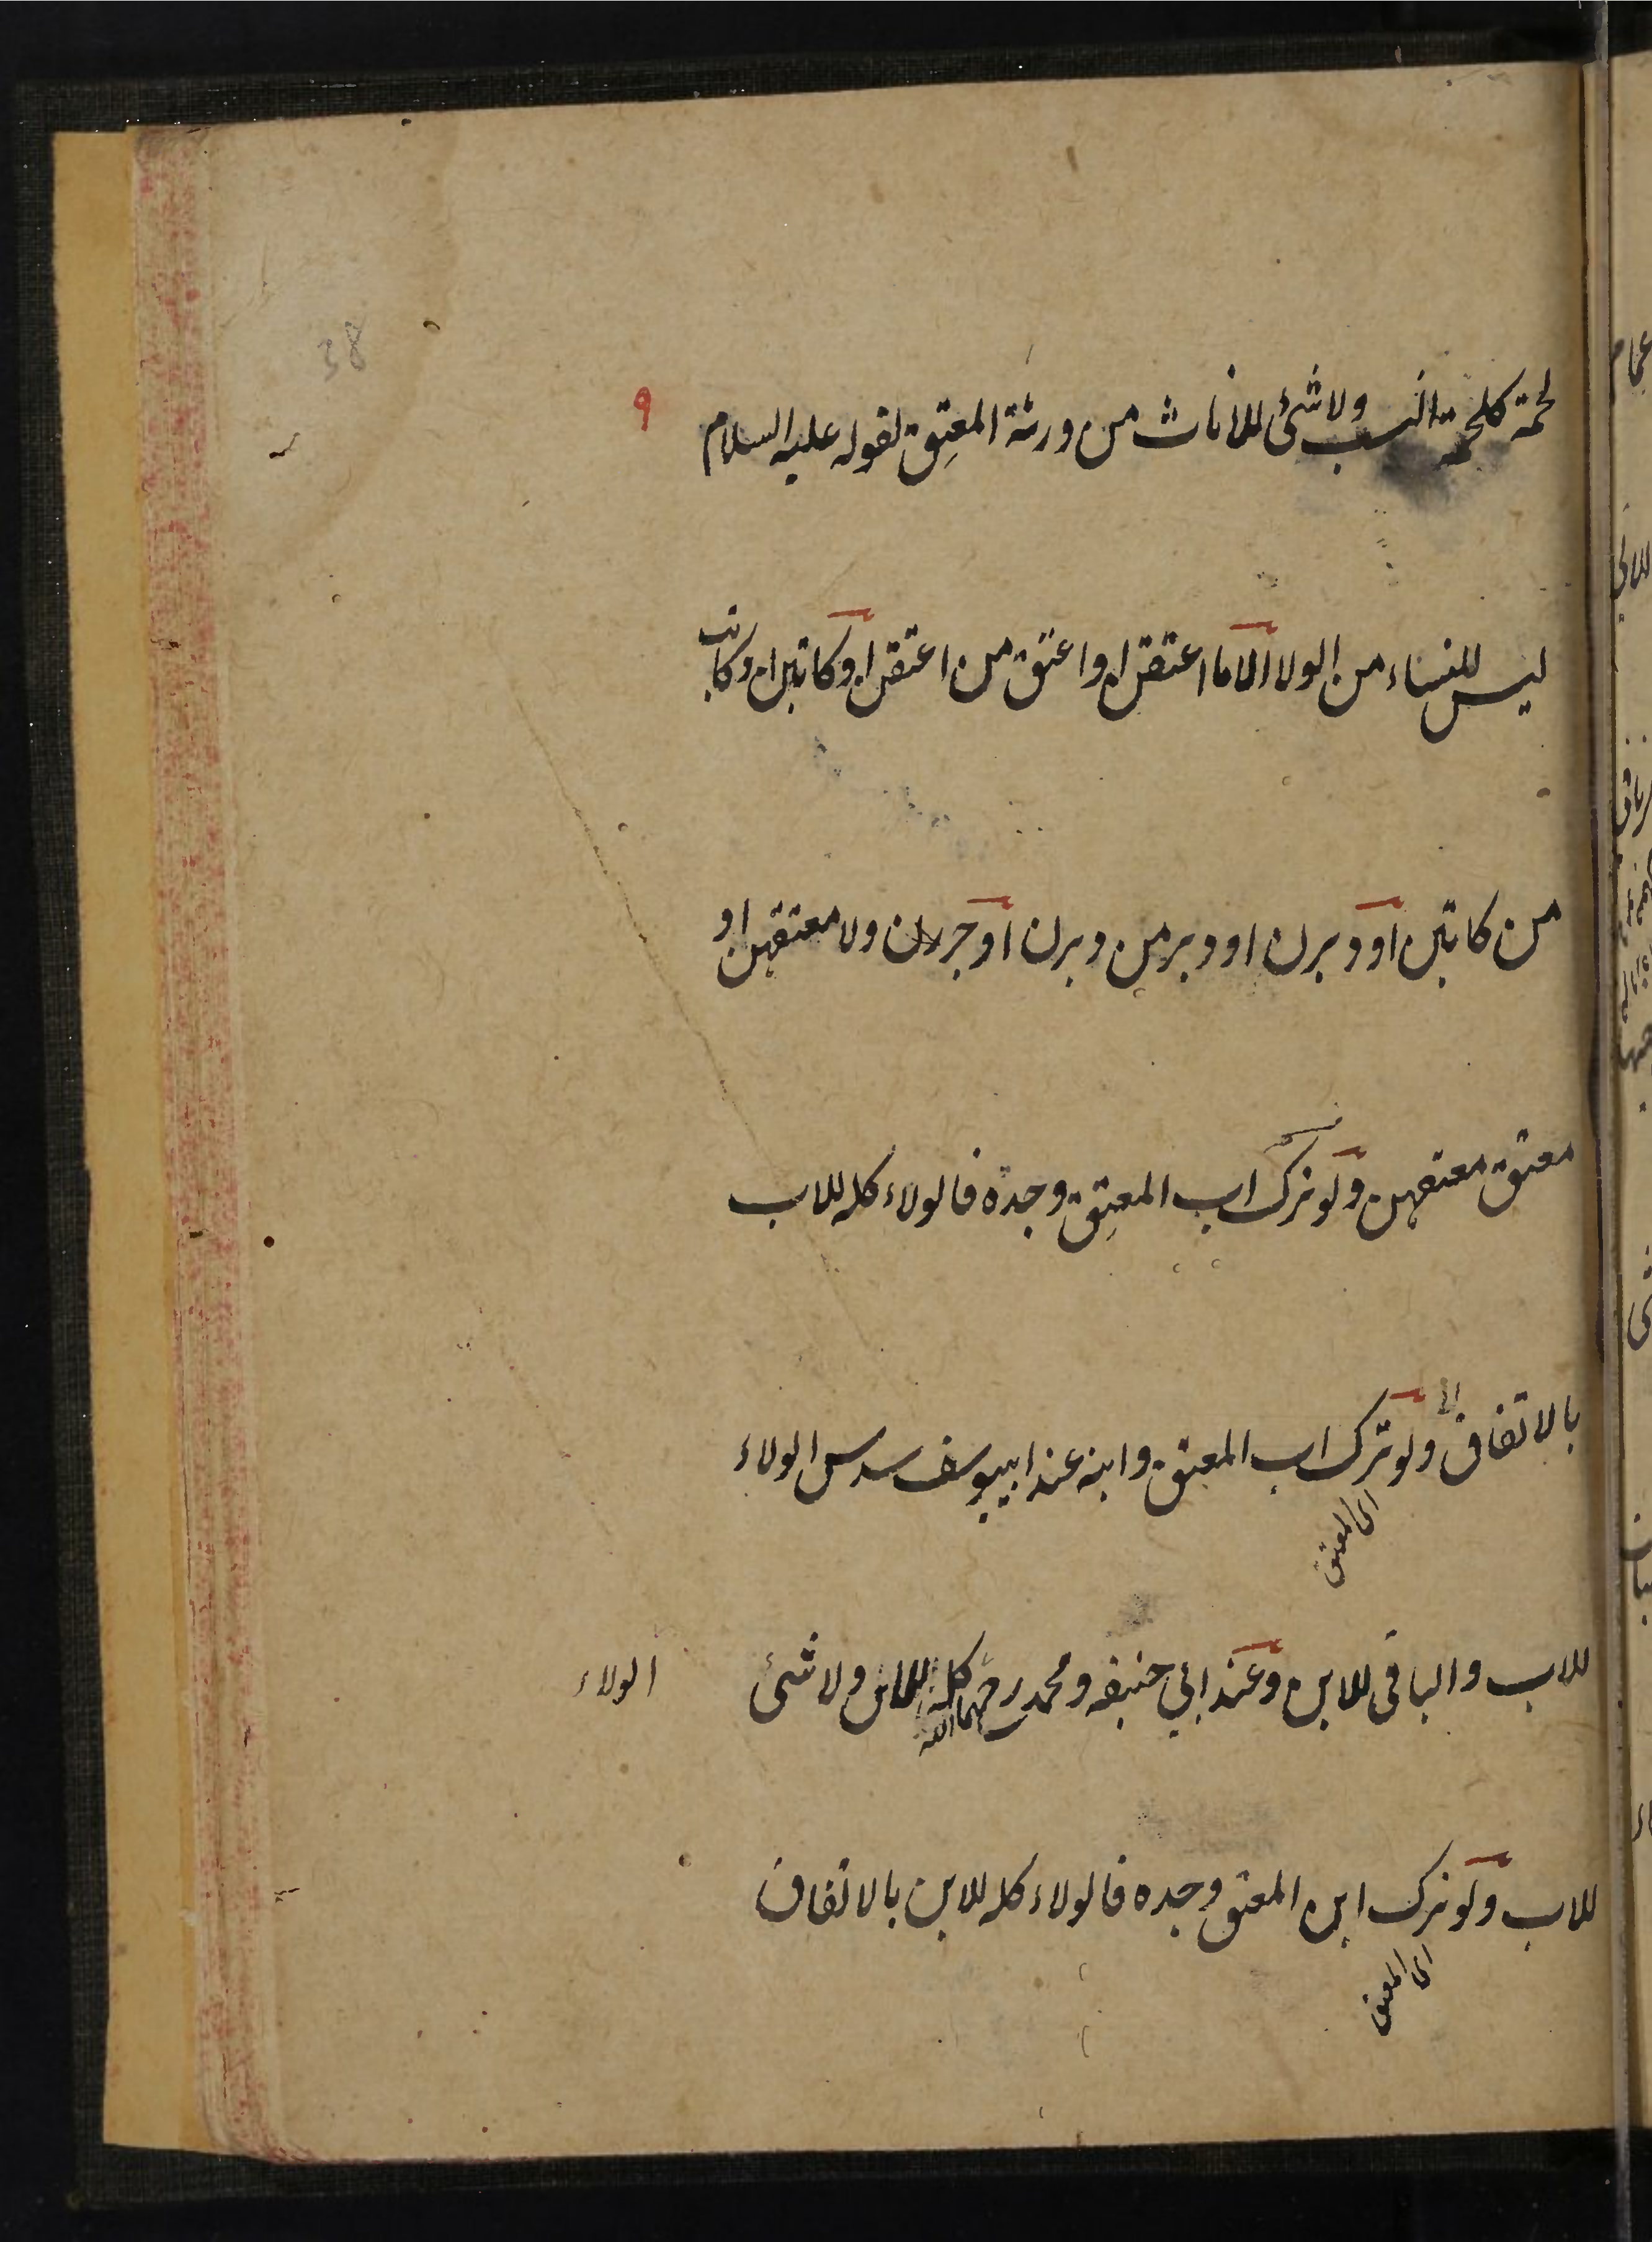 38
٩
لحمة كلحمة النسب ولا شئ للاناث من ورثة المعتِق لقوله عليه السلام
ليس للنساء من الولاء الا ما اعتقن او اعتق من اعتقن او كاتبن او كاتب
من كاتبن او دبرن او دبر من دبرن او جر ولاء معتقهن او
معتق معتقهن ولو ترك اب المعتِق وجده فالولاء كله للاب
بالاتفاق ولو ترك اب المعتق وابنه عند ابييوسف سدس الولاء
اى المعتق
للاب والباقى للابن وعند ابي حنيفه ومحمد رحمهما الله كله للابن ولا شئ
الولاء
للاب ولو ترك ابن المعتق وجده فالولاء كله للابن بالاتفاق
اى المعتق